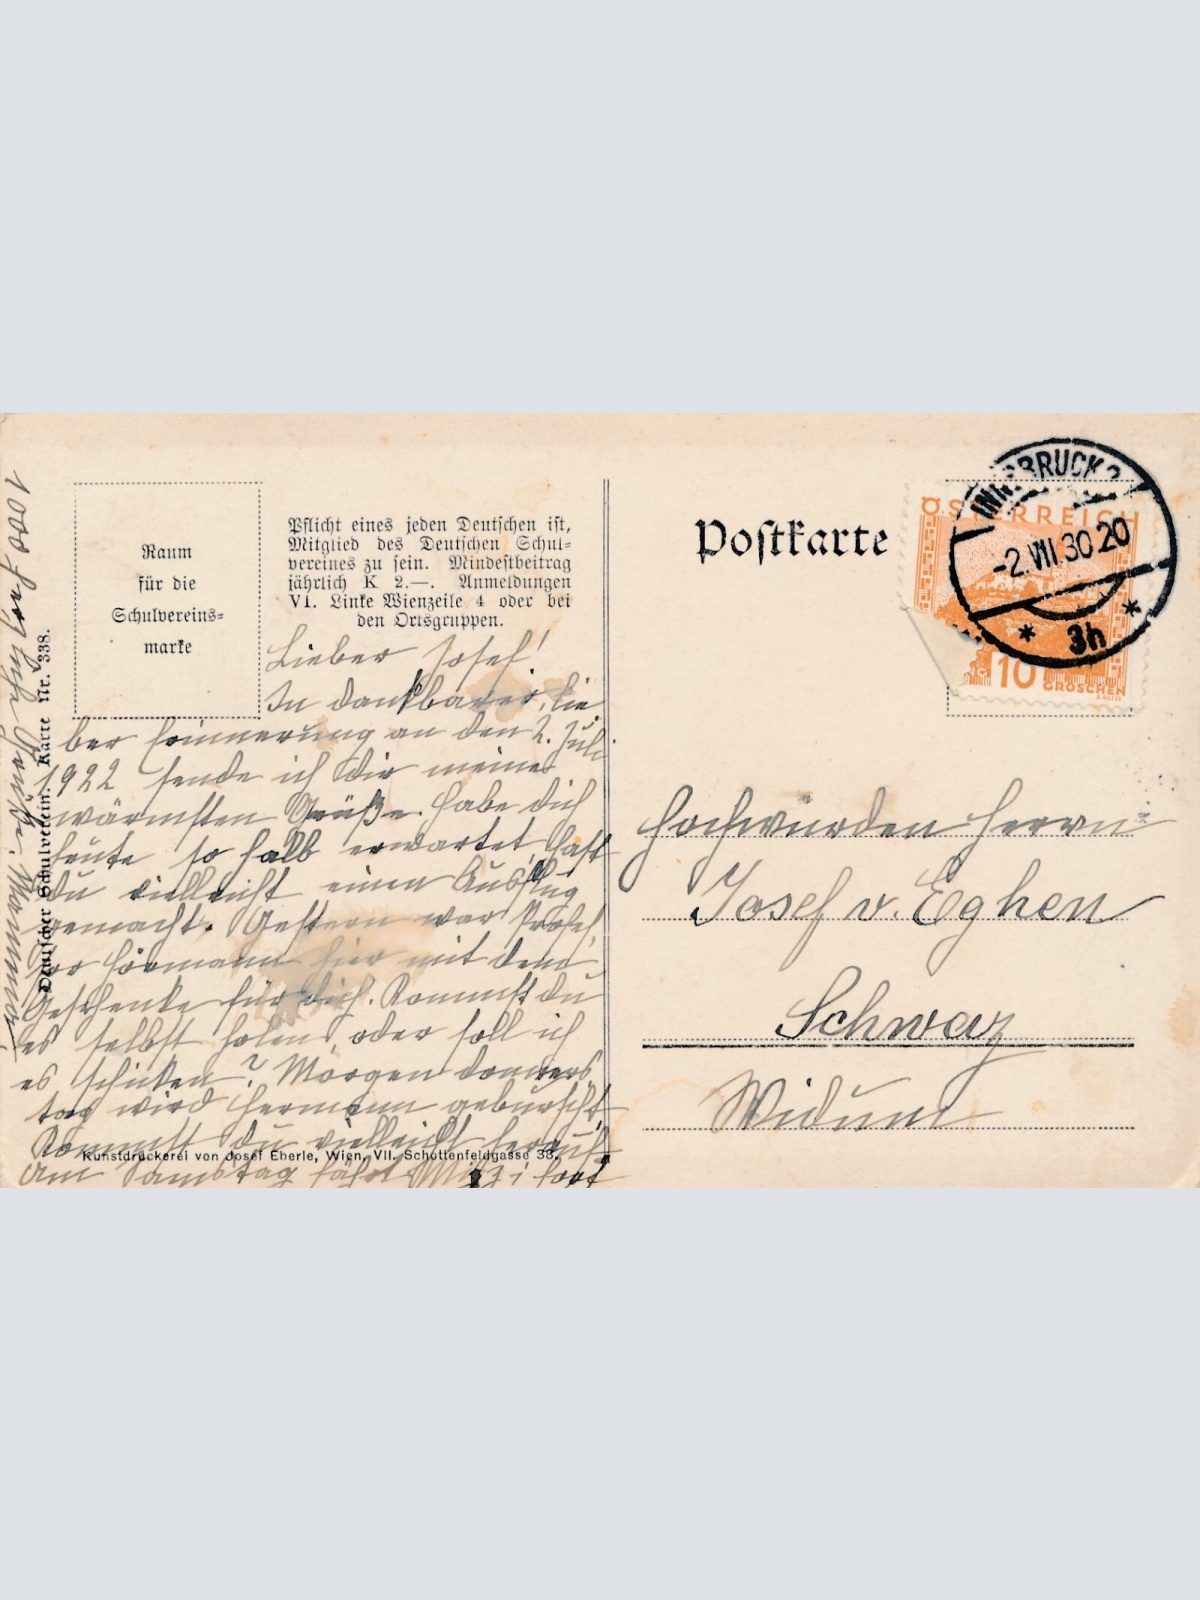 Raum
für die
Schulvereins-
marke
Pflicht eines jeden Deutschen ist,
Mitglied des Deutschen Schul-
vereines zu sein. Mindestbeitrag
jährlich K 2.—. Anmeldungen
VI. Linke Wienzeile 4 oder bei
den Ortsgruppen.
Lieber Josef!
In dankbarer, lie
ber Erinnerung an den 2. Juli
1922 sende ich dir meine
wärmsten Grüße. Habe dich
heute so halb erwartet hast
du vielleicht einen Ausflug
gemacht. Gestern war Profes
sor Hörmann hier mit dem
Geschenke für dich. Kommst du
es selbst holen, oder soll ich
es schicken? Morgen donners
tag wird Hermann
Kommst du vielleicht herauf?
Am Samstag fährt Mitzi fort
1000 herzliche Grüße.
Deutscher Schulverein. Karte Nr. 338.
Kunstdruckerei von Josef Eberle, Wien, VII. Schottenfeldgasse 38.
Postkarte
ÖSTERREICH
10
GROSCHEN
INNSBRUCK 2
-2.VII.30 20
* 3h *
Hochwürden Herrn
Josef v. Eghen
Schwaz
Widum